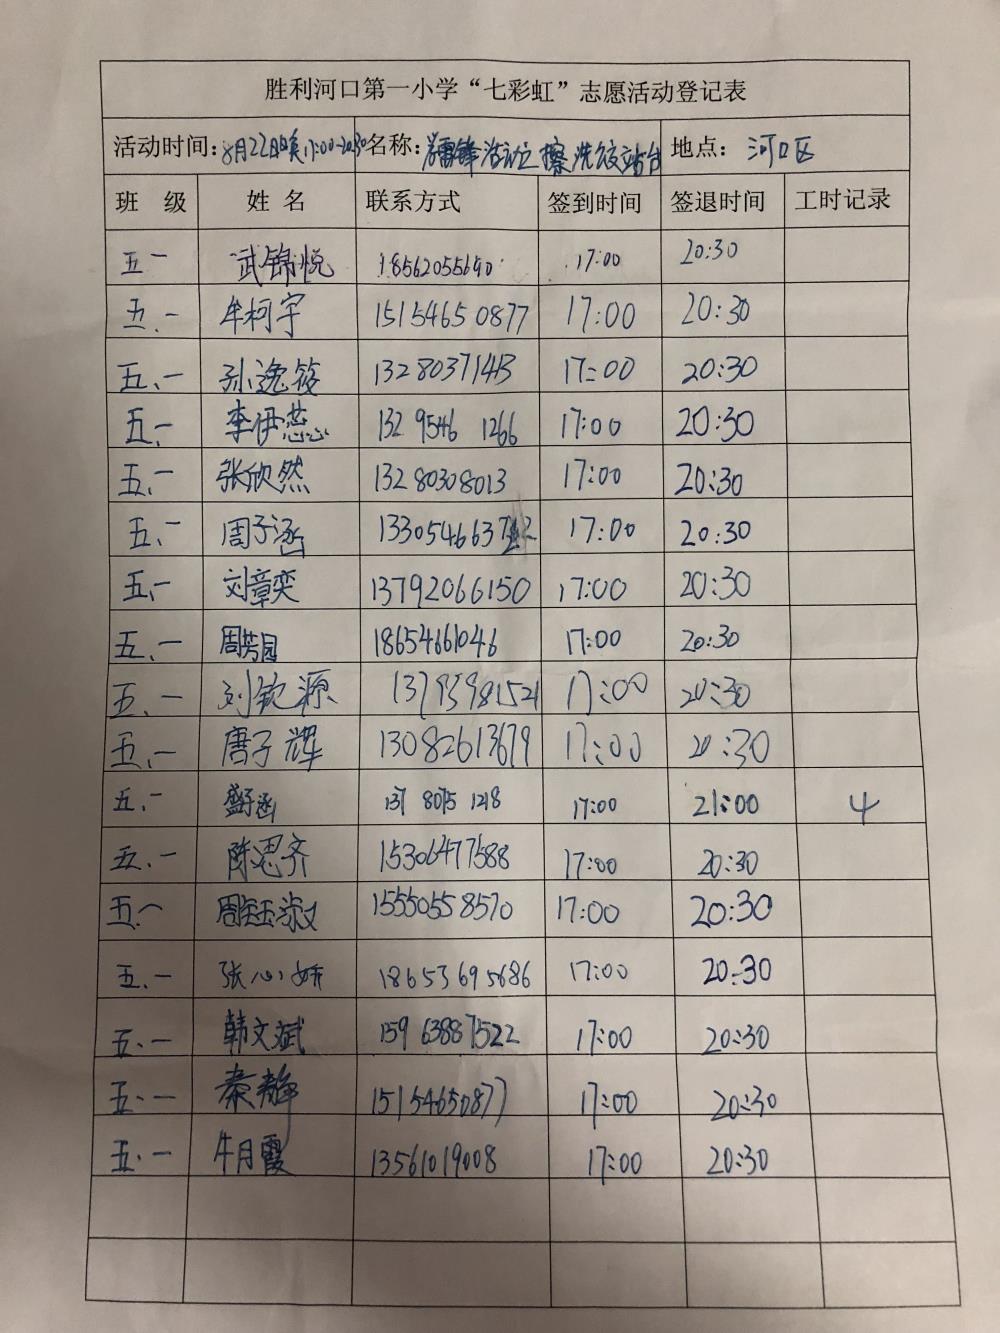 胜利河口第一小学“七彩虹”志愿活动登记表
活动时间:8月22日 17:00-20:30 名称: 雷锋活动之擦洗公交站台 地点: 河口区
班 级 姓 名 联系方式 签到时间 签退时间 工时记录
五一 武锦悦 18562055690 17:00 20:30
五.一 牟柯宇 15154650877 17:00 20:30
五.一 孙逸筱 13280371413 17:00 20:30
五.一 李伊蕊 132 9546 1266 17:00 20:30
五.一 张欣然 13280308013 17:00 20:30
五.一 周子涵 17:00 20:30
五.一 刘章奕 13792066150 17:00 20:30
五.一 周芳园 18654661046 17:00 20:30
五.一 刘钦源 13793981521 17:00 20:30
五.一 唐子辉 13082613679 17:00 20:30
五.一 盛子涵 137 8075 1218 17:00 21:00 4
五.一 陈思齐 15306477588 17:00 20:30
五一 15550558570 17:00 20:30
五.一 张心娇 18653695686 17:00 20:30
五.一 韩文斌 159 6388 7522 17:00 20:30
五.一 秦静 15154650877 17:00 20:30
五.一 牛月霞 13561019008 17:00 20:30